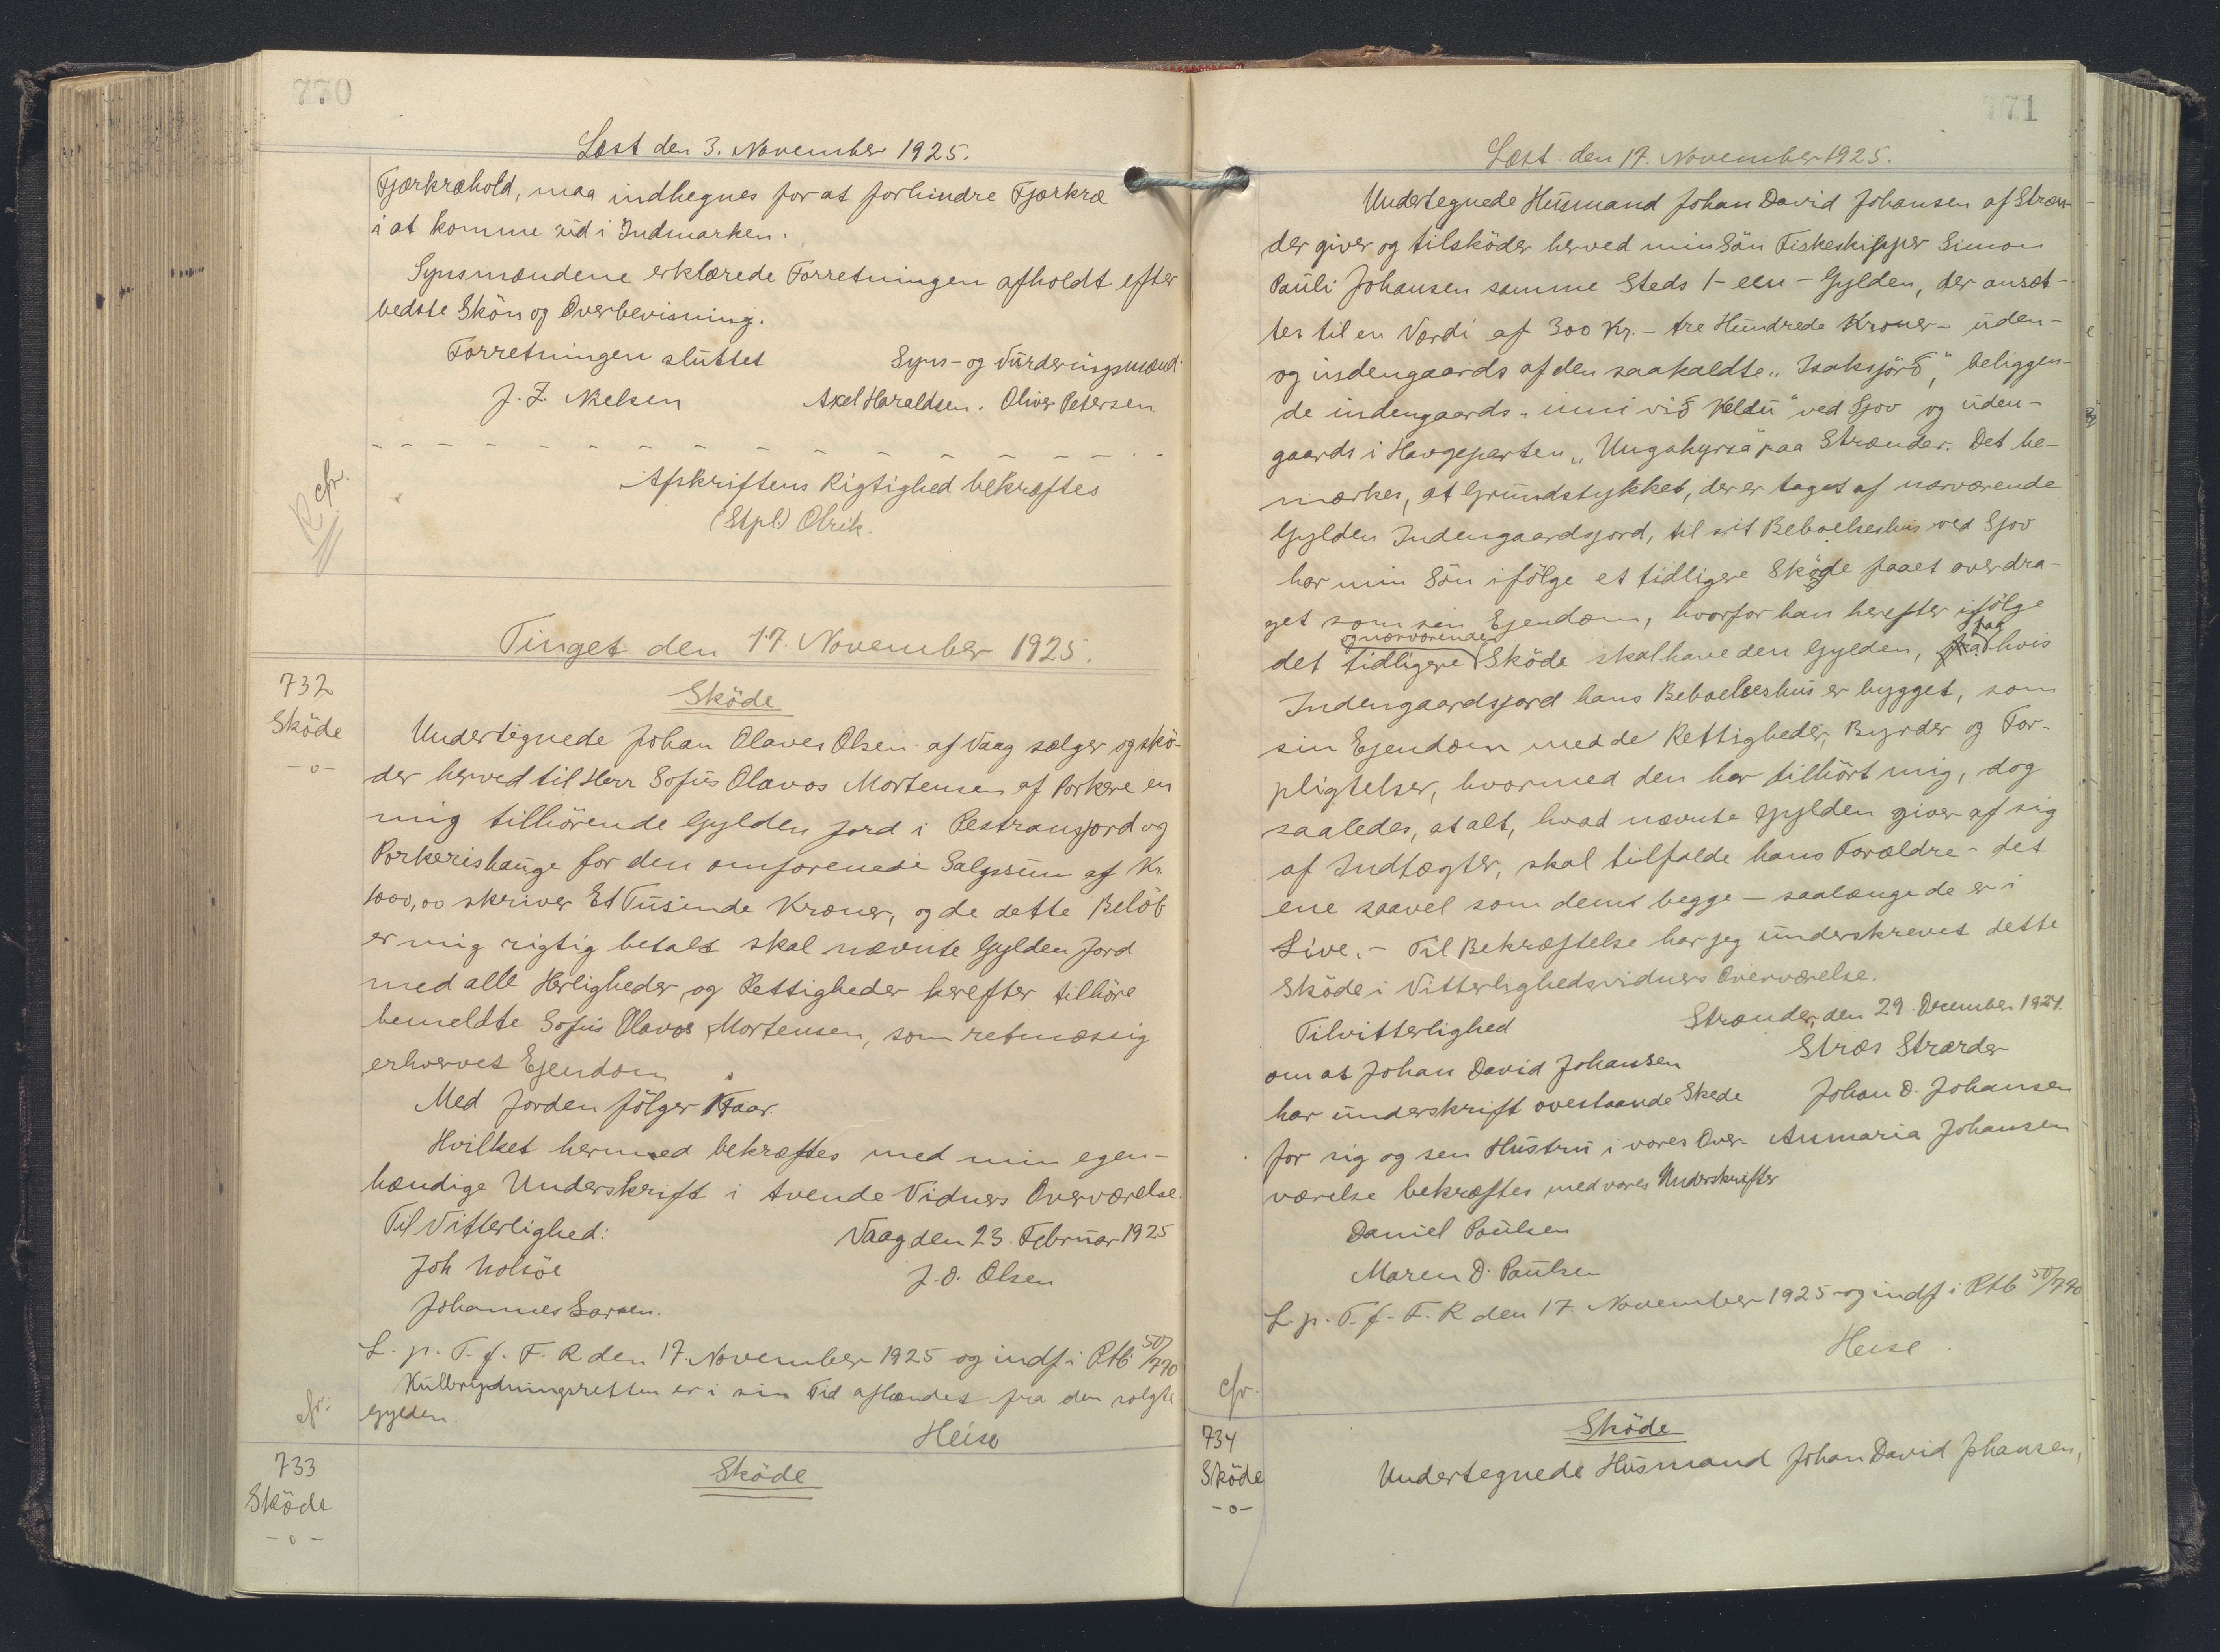 770
Læst den 3. November 1925.
Fjærkræhold, maa indhegnes for at forhindre Fjærkræ
i at komme ud i Indmarken.
Synsmændene erklærede Forretningen afholdt efter
bedste Skön og Overbevisning.
Forretningen sluttet Syns- og Vurderingsmænd.
J. Z. Nielsen Axel Haraldsen. Oliver Petersen
cfr.
Afskriftens Rigtighed bekræftes
(Stpl) Olrik.
Tinget den 17. November 1925.
732
Sköde
-o-
Sköde
Undertegnede Johan Olaves Olsen af Vaag sælger og skö-
der herved til Herr Sofus Olavos Mortensen af Porkere en
mig tilhörende Gylden Jord i Pestransjord og
Porkerishauge for den omforenede Salgssum af Kr.
1000,00 skriver Et Tusinde Kroner, og da dette Belöb
er mig rigtig betalt skal nævnte Gylden Jord
med alle Herligheder og Rettigheder herefter tilhöre
bemeldte Sofus Olavos Mortensen, som retmæssig
erhvervet Ejendom
Med Jorden fölger 1 Faar.
Hvilket hermed bekræftes med min egen-
hændige Underskrift i tvende Vidners Overværelse.
Til Vitterlighed: Vaag den 23. Februar 1925
Joh Nolsöe J. O. Olsen
Johannes Larsen.
L. p. T. f. F. R den 17. November 1925 og indf i Ptb 50/770
Kulbrydningsretten er i sin Tid afhændet fra den solgte
Gylden.
cfr.
Heise
733
Sköde
-o-
Sköde
771
Læst den 17. November 1925.
Undertegnede Husmand Johan David Johansen af Stræn-
der giver og tilsköder herved min Sön Fiskeskipper Simon
Pauli Johansen samme Steds 1 - een - Gylden, der ansæt-
tes til en Værdi af 300 Kr. - tre Hundrede Kroner - uden-
og indengaards af den saakaldte „Isaksjörð", beliggen-
de indengaards „inni við Keldu" ved Sjov og uden-
gaards i Havgeparten „Ungahyrsa" paa Strænder. Det be-
mærkes, at Grundstykket, der er taget af nærværende
Gylden Indengaardsjord, til sit Beboelseshus ved Sjov
har min Sön ifölge et tidligere Sköde faaet overdra-
get som sin Ejendom, hvorfor han herefter ifölge
det tidligere og nærværende Sköde skal have den Gylden, fra paa hvis
Indengaardsjord hans Beboelseshus er bygget, som
sin Ejendom med de Rettigheder, Byrder og For-
pligtelser, hvormed den har tilhört mig, dog
saaledes, at alt, hvad nævnte Gylden giver af sig
af Indtægter, skal tilfalde hans Forældre - det
ene saavel som dem begge - saalænge de er i
Live. - Til Bekræftelse har jeg underskrevet dette
Sköde i Vitterlighedsvidners Overværelse.
Tilvitterlighed Strænder, den 29. December 1924.
om at Johan David Johansen Stræs Strærder
har underskrift ovestaande Skede Johan D. Johansen
for sig og sen Hustru i vores Over- Anmaria Johansen
værelse bekræftes med vores Underskrifter
Daniel Poulsen
Maren D. Poulsen
L. p. T. f. F. R den 17. November 1925 og indf i Ptb 50/770
Heise.
cfr.
734
Sköde
-o-
Sköde
Undertegnede Husmand Johan David Johansen,